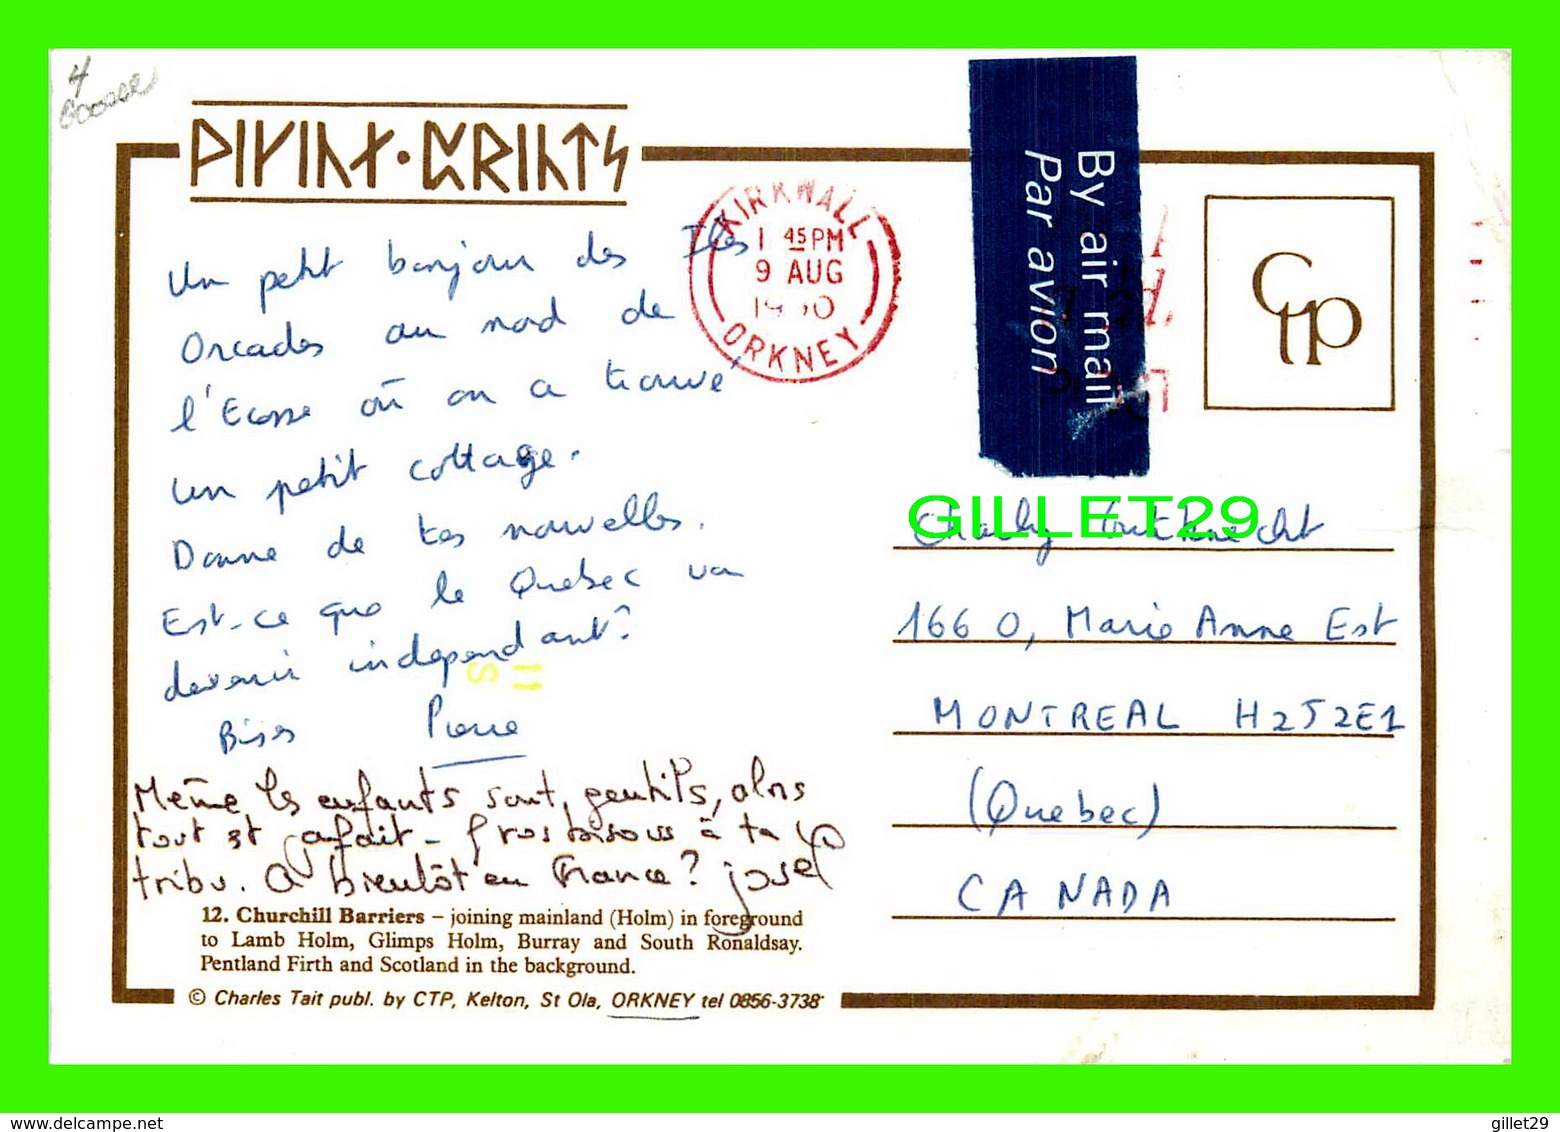 4
VIKING · PRINTS
KIRKWALL
1 45 PM
9 AUG
ORKNEY
By air mail
Par avion
CTP
Un petit bonjour des Iles
Orcades au nord de
l'Ecosse où on a trouvé
un petit cottage.
Donne de tes nouvelles.
Est-ce que le Quebec va
devenir independant?
Bises Pierre
Même les enfants sont gentils, alors
tout est parfait - Gros bisous à ta
tribu. A bientôt en France? José
12. Churchill Barriers – joining mainland (Holm) in foreground
to Lamb Holm, Glimps Holm, Burray and South Ronaldsay.
Pentland Firth and Scotland in the background.
© Charles Tait publ. by CTP, Kelton, St Ola, ORKNEY tel 0856-3738
GILLET29
Charly
1660, Marie Anne Est
MONTREAL H2J2E1
(Quebec)
CANADA
www.delcampe.net
gillet29